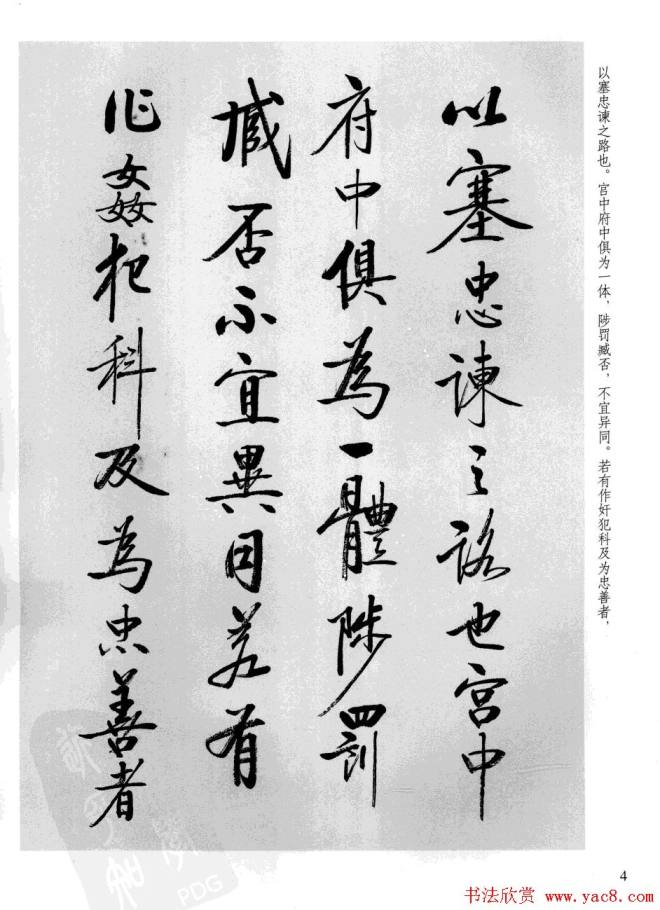 以塞忠谏之路也。宫中府中俱为一体，陟罚臧否，不宜异同。若有作奸犯科及为忠善者，
以塞忠諫之路也宮中
府中俱為一體陟罰
臧否不宜異同若有
作姦犯科及為忠善者
PDG
4
书法欣赏 www.yac8.com